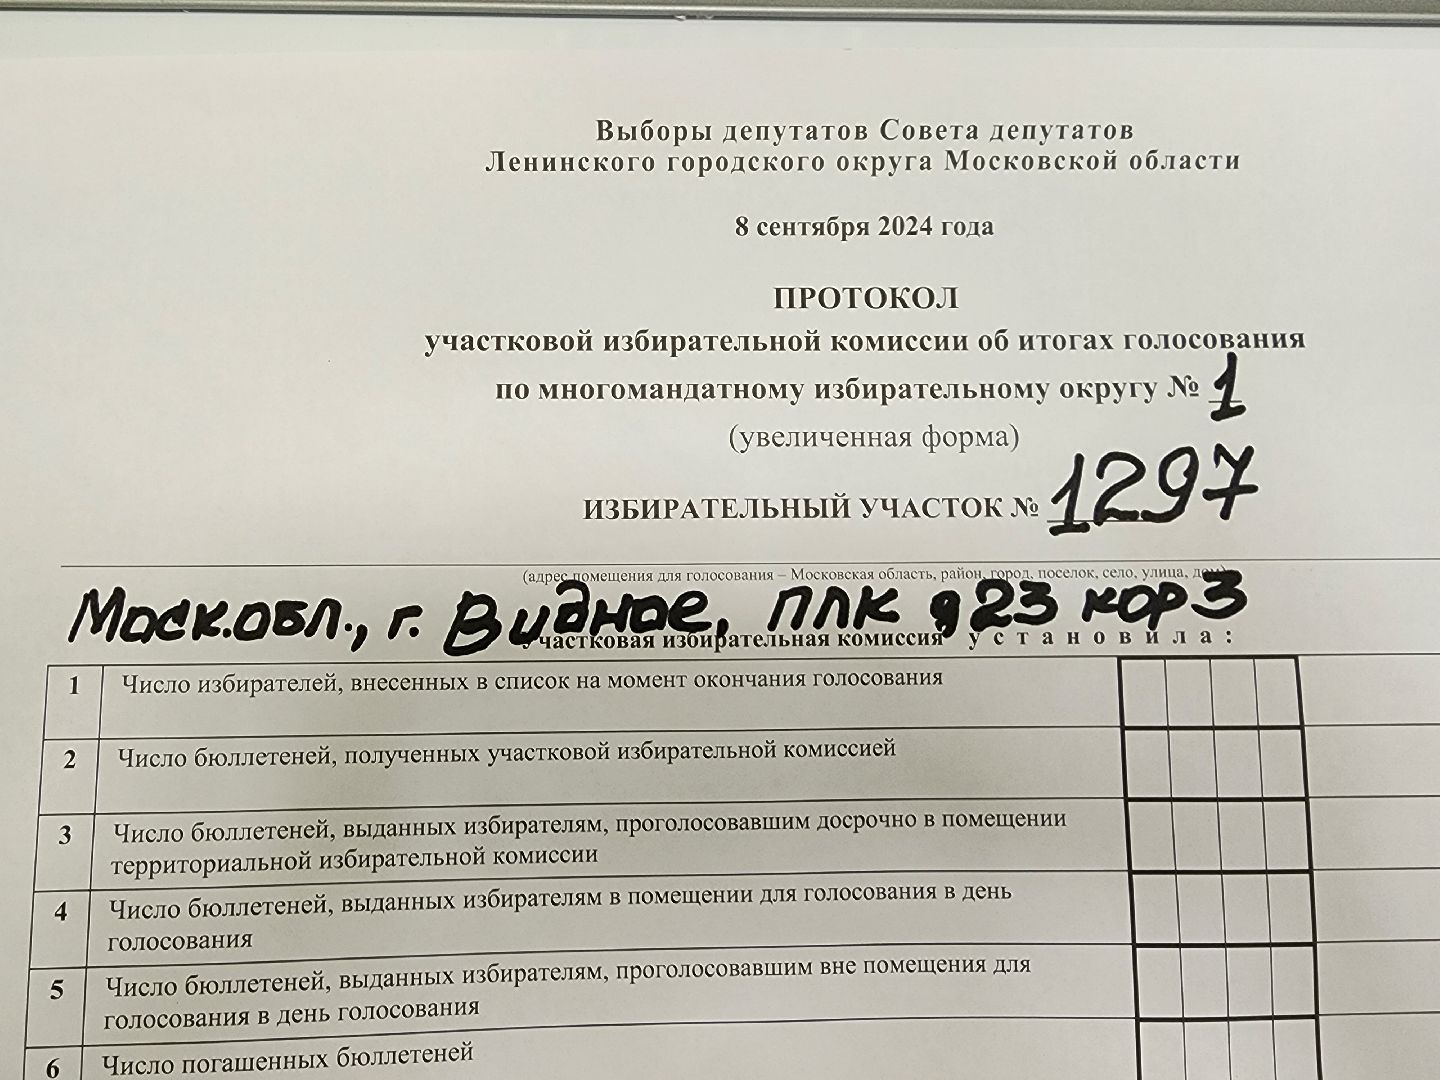 Выборы депутатов Совета депутатов
Ленинского городского округа Московской области
8 сентября 2024 года
ПРОТОКОЛ
участковой избирательной комиссии об итогах голосования
по многомандатному избирательному округу № 1
(увеличенная форма)
ИЗБИРАТЕЛЬНЫЙ УЧАСТОК № 1297
(адрес помещения для голосования – Московская область, район, город, поселок, село, улица, дом)
Моск.обл., г. Видное, ПЛК д23 кор3
Участковая избирательная комиссия установила:
1 Число избирателей, внесенных в список на момент окончания голосования
2 Число бюллетеней, полученных участковой избирательной комиссией
3 Число бюллетеней, выданных избирателям, проголосовавшим досрочно в помещении
территориальной избирательной комиссии
4 Число бюллетеней, выданных избирателям в помещении для голосования в день
голосования
5 Число бюллетеней, выданных избирателям, проголосовавшим вне помещения для
голосования в день голосования
6 Число погашенных бюллетеней